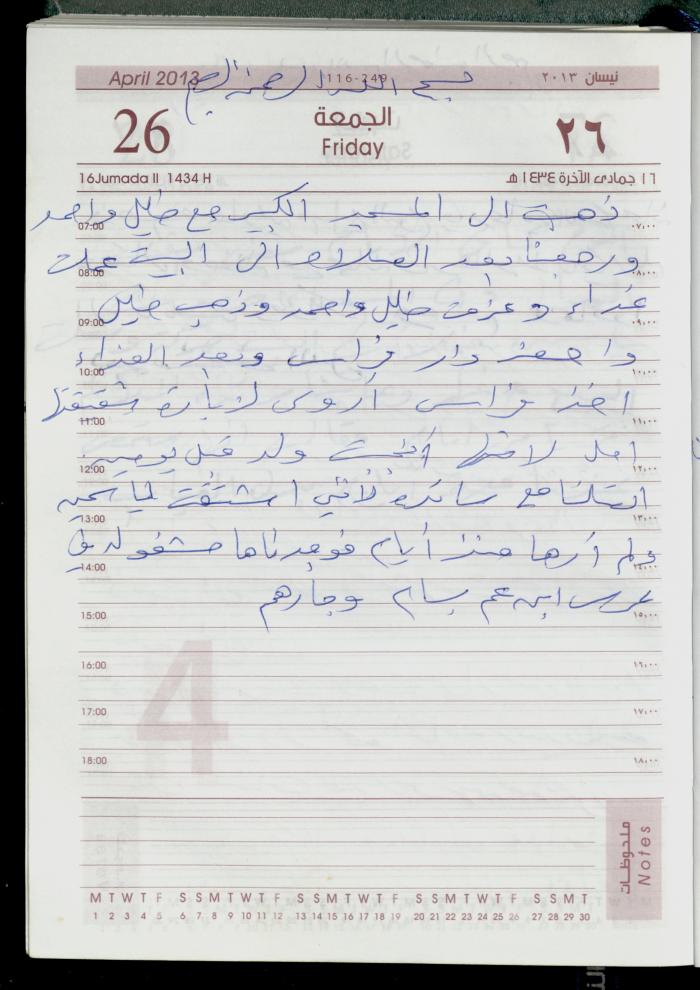 April 2013 116-249 نيسان ٢٠١٣
بسم الله الرحمن الرحيم
26 الجمعة ٢٦
Friday
16Jumada II 1434 H ١٦ جمادى الآخرة ١٤٣٤ هـ
ذهبت الى المسجد الكبير مع خليل واحمد
07:00 ٠٧,٠٠
ورجعنا بعد الصلاة الى البيت عملت
08:00 ٠٨,٠٠
غداء وعزمت خليل واحمد وذهب خليل
09:00 ٠٩,٠٠
واحمد دار فراس وبعد الغداء
10:00 ١٠,٠٠
اخذ فراس أروى لزيارة شقيقتها
11:00 ١١,٠٠
امل لانها أنجبت ولد قبل يومين
12:00 ١٢,٠٠
اتصلنا مع سائدة لأني اشتقت لياسمين
13:00 ١٣,٠٠
ولم أرها منذ أيام فوجدناها مشغولة في
14:00 ١٤,٠٠
عرس ابن عم بسام وجارهم
15:00 ١٥,٠٠
16:00 ١٦,٠٠
4
17:00 ١٧,٠٠
18:00 ١٨,٠٠
ملحوظات
Notes
M T W T F S S M T W T F S S M T W T F S S M T W T F S S M T
1 2 3 4 5 6 7 8 9 10 11 12 13 14 15 16 17 18 19 20 21 22 23 24 25 26 27 28 29 30